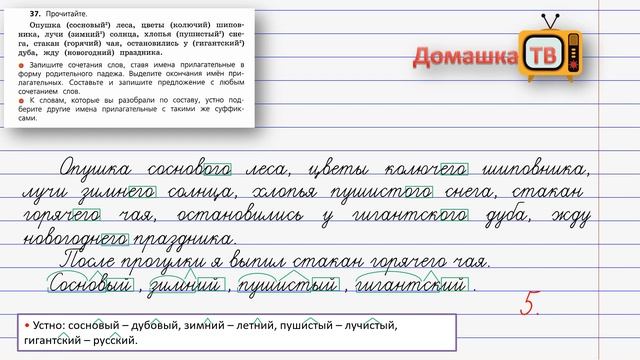 37. Прочитайте.
Опушка (сосновый²) леса, цветы (колючий) шипов-
ника, лучи (зимний²) солнца, хлопья (пушистый²) сне-
га, стакан (горячий) чая, остановились у (гигантский²)
дуба, жду (новогодний) праздника.
Запишите сочетания слов, ставя имена прилагательные в
форму родительного падежа. Выделите окончания имён при-
лагательных. Составьте и запишите предложение с любым
сочетанием слов.
К словам, которые вы разобрали по составу, устно под-
берите другие имена прилагательные с такими же суффик-
сами.
Домашка
ТВ
Опушка соснового леса, цветы колючего шиповника,
лучи зимнего солнца, хлопья пушистого снега, стакан
горячего чая, остановились у гигантского дуба, жду
новогоднего праздника.
После прогулки я выпил стакан горячего чая.
Сосновый, зимний, пушистый, гигантский.
5.
• Устно: сосновый – дубовый, зимний – летний, пушистый – лучистый,
гигантский – русский.